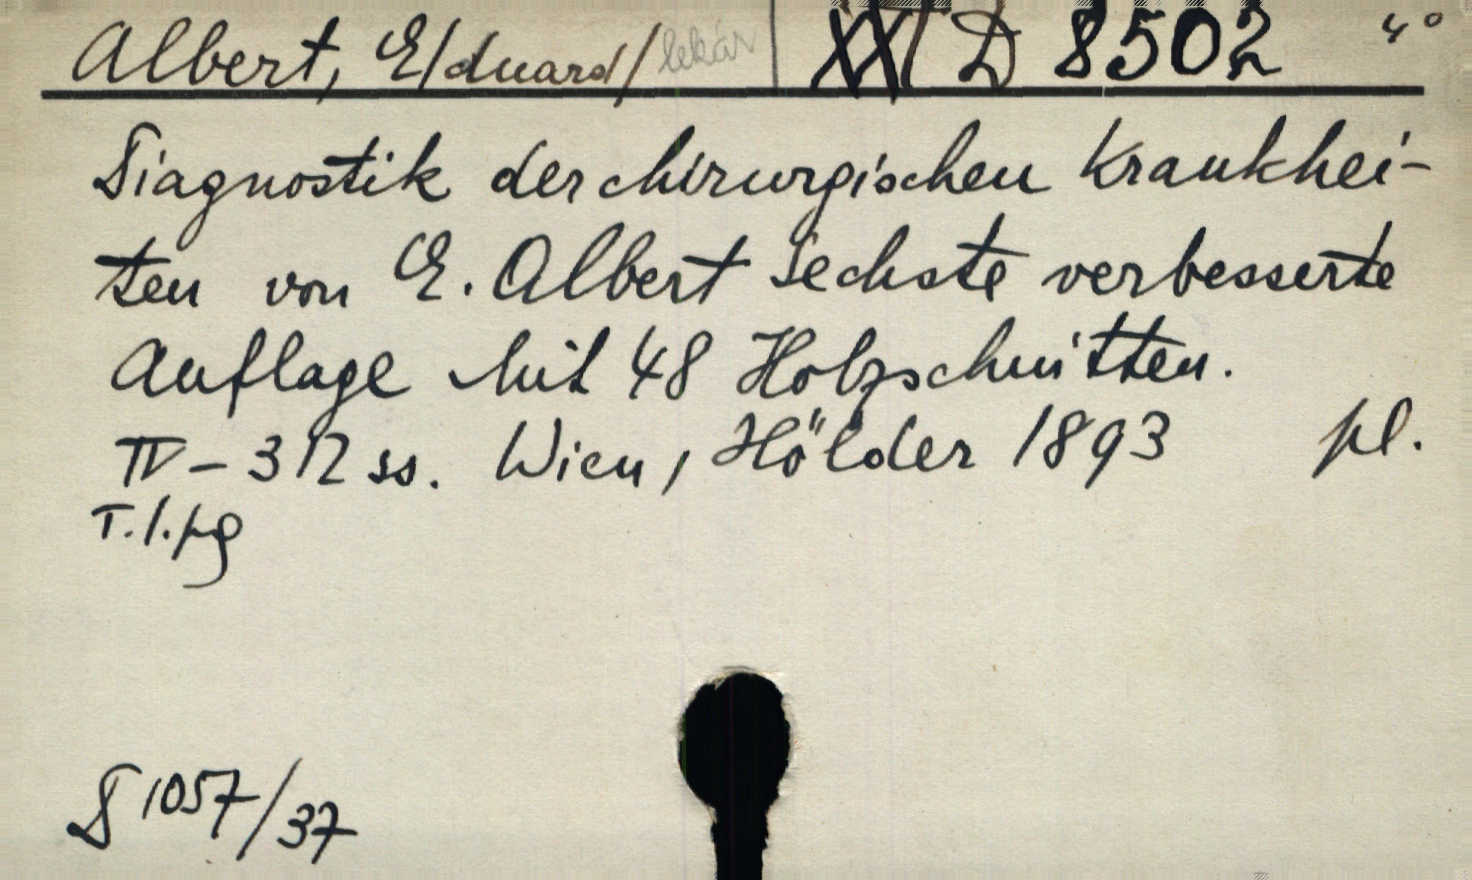 Albert, E/duard/ lekár XXI D 8502 4°
Diagnostik der chirurgischen Krankhei-
ten von E. Albert Sechste verbesserte
Auflage Mit 48 Holzschnitten.
IV - 312 ss. Wien, Hölder 1893 pl.
T.l.pg
D 1057/37